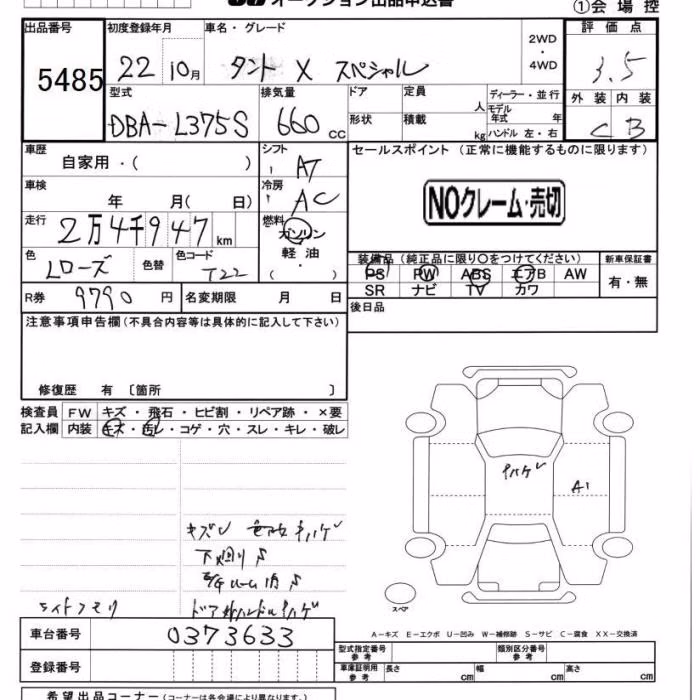 オークション出品申込書
①会場控
出品番号 5485
初度登録年月 22 10月
車名・グレード タント X スペシャル
2WD・4WD
評価点 3.5
型式 DBA-L375S
排気量 660 cc
ドア 定員 人
ディーラー・並行
モデル年式 年
形状 積載 kg
ハンドル 左・右
外装 内装
C B
車歴 自家用・( )
シフト AT
セールスポイント (正常に機能するものに限ります)
車検 年 月( 日)
冷房 AC
NOクレーム・売切
走行 2万4千947 km
燃料 ガソリン・軽油・( )
色 Lローズ 色替 色コード T22
装備品 (純正品に限り〇をつけてください)
新車保証書
PS PW ABS エアB AW
有・無
SR ナビ TV カワ
R券 9790 円 名変期限 月 日
後日品
注意事項申告欄 (不具合内容等は具体的に記入して下さい)
修復歴 有 〔箇所 〕
検査員 FW キズ・飛石・ヒビ割・リペア跡・×要
記入欄 内装 キズ・汚レ・コゲ・穴・スレ・キレ・破レ
A1
下廻りS
スペア
ライトクモリ
A-キズ E-エクボ U-凹み W-補修跡 S-サビ C-腐食 XX-交換済
車台番号 0373633
登録番号
型式指定番号 参考 類別区分番号 参考
車庫証明用 参考 長さ cm 幅 cm 高さ cm
希望出品コーナー (コーナーは各会場により異なります)